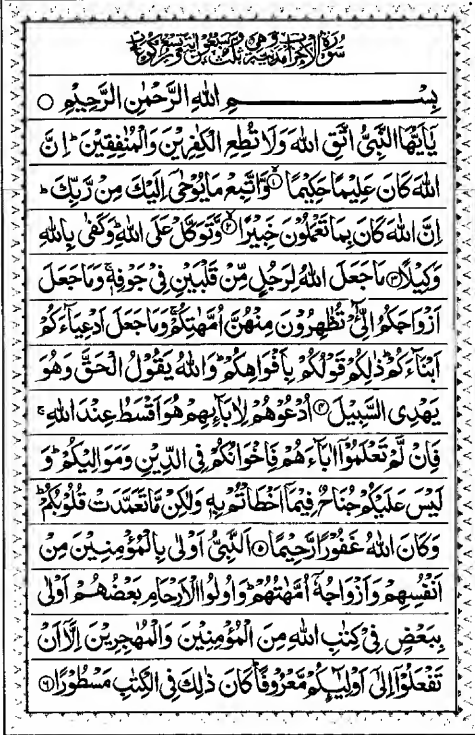 سُوْرَةُ الْاَحْزَابِ مَدَنِيَّةٌ وَّهِيَ ثَلٰثٌ وَّسَبْعُوْنَ اٰيَةً وَّتِسْعُ رُكُوْعَاتٍ
بِسْمِ اللّٰهِ الرَّحْمٰنِ الرَّحِيْمِ ○
يٰۤاَيُّهَا النَّبِيُّ اتَّقِ اللّٰهَ وَلَا تُطِعِ الْكٰفِرِيْنَ وَالْمُنٰفِقِيْنَ ؕ اِنَّ
اللّٰهَ كَانَ عَلِيْمًا حَكِيْمًا ۙ﴿۱﴾ وَّاتَّبِعْ مَا يُوْحٰۤى اِلَيْكَ مِنْ رَّبِّكَ ؕ
اِنَّ اللّٰهَ كَانَ بِمَا تَعْمَلُوْنَ خَبِيْرًا ۙ﴿۲﴾ وَّتَوَكَّلْ عَلَى اللّٰهِ ؕ وَكَفٰى بِاللّٰهِ
وَكِيْلًا ﴿۳﴾ مَا جَعَلَ اللّٰهُ لِرَجُلٍ مِّنْ قَلْبَيْنِ فِيْ جَوْفِهٖ ۚ وَمَا جَعَلَ
اَزْوَاجَكُمُ الّٰٓـِٔيْ تُظٰهِرُوْنَ مِنْهُنَّ اُمَّهٰتِكُمْ ۚ وَمَا جَعَلَ اَدْعِيَآءَكُمْ
اَبْنَآءَكُمْ ؕ ذٰلِكُمْ قَوْلُكُمْ بِاَفْوَاهِكُمْ ؕ وَاللّٰهُ يَقُوْلُ الْحَقَّ وَهُوَ
يَهْدِى السَّبِيْلَ ﴿۴﴾ اُدْعُوْهُمْ لِاٰبَآئِهِمْ هُوَ اَقْسَطُ عِنْدَ اللّٰهِ ۚ
فَاِنْ لَّمْ تَعْلَمُوْۤا اٰبَآءَهُمْ فَاِخْوَانُكُمْ فِى الدِّيْنِ وَمَوَالِيْكُمْ ؕ وَ
لَيْسَ عَلَيْكُمْ جُنَاحٌ فِيْمَاۤ اَخْطَاْتُمْ بِهٖ وَلٰكِنْ مَّا تَعَمَّدَتْ قُلُوْبُكُمْ ؕ
وَكَانَ اللّٰهُ غَفُوْرًا رَّحِيْمًا ﴿۵﴾ اَلنَّبِيُّ اَوْلٰى بِالْمُؤْمِنِيْنَ مِنْ
اَنْفُسِهِمْ وَاَزْوَاجُهٗۤ اُمَّهٰتُهُمْ ؕ وَاُولُوا الْاَرْحَامِ بَعْضُهُمْ اَوْلٰى
بِبَعْضٍ فِيْ كِتٰبِ اللّٰهِ مِنَ الْمُؤْمِنِيْنَ وَالْمُهٰجِرِيْنَ اِلَّاۤ اَنْ
تَفْعَلُوْۤا اِلٰۤى اَوْلِيٰٓئِكُمْ مَّعْرُوْفًا ؕ كَانَ ذٰلِكَ فِى الْكِتٰبِ مَسْطُوْرًا ﴿۶﴾